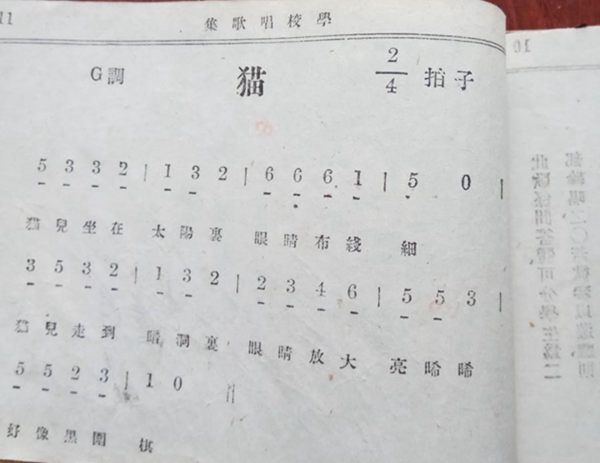 11 學校唱歌集
G調 猫 2/4 拍子
5 3 3 2 | 1 3 2 | 6 6 6 1 | 5 0 |
猫兒坐在 太陽裏 眼睛布綫 細
3 5 3 2 | 1 3 2 | 2 3 4 6 | 5 5 3 |
猫兒走到 暗洞裏 眼睛放大 亮晞晞
5 5 2 3 | 1 0 ||
好像黑圍 棋
10